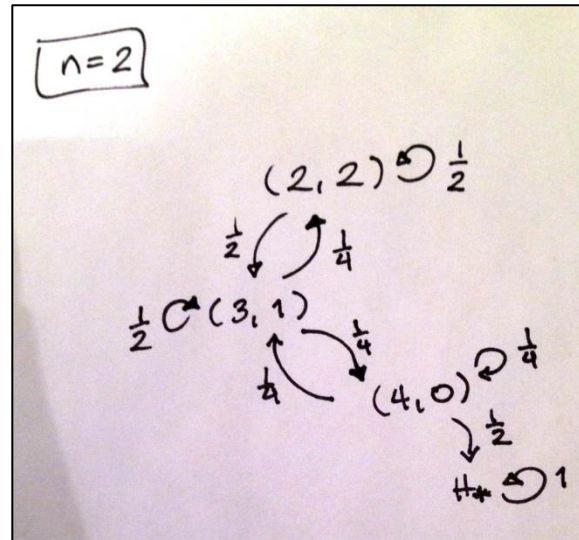 n=2
(2,2) 1/2
1/2 1/4
1/2 (3,1) 1/4
1/4 (4,0) 1/4
1/2
H* 1